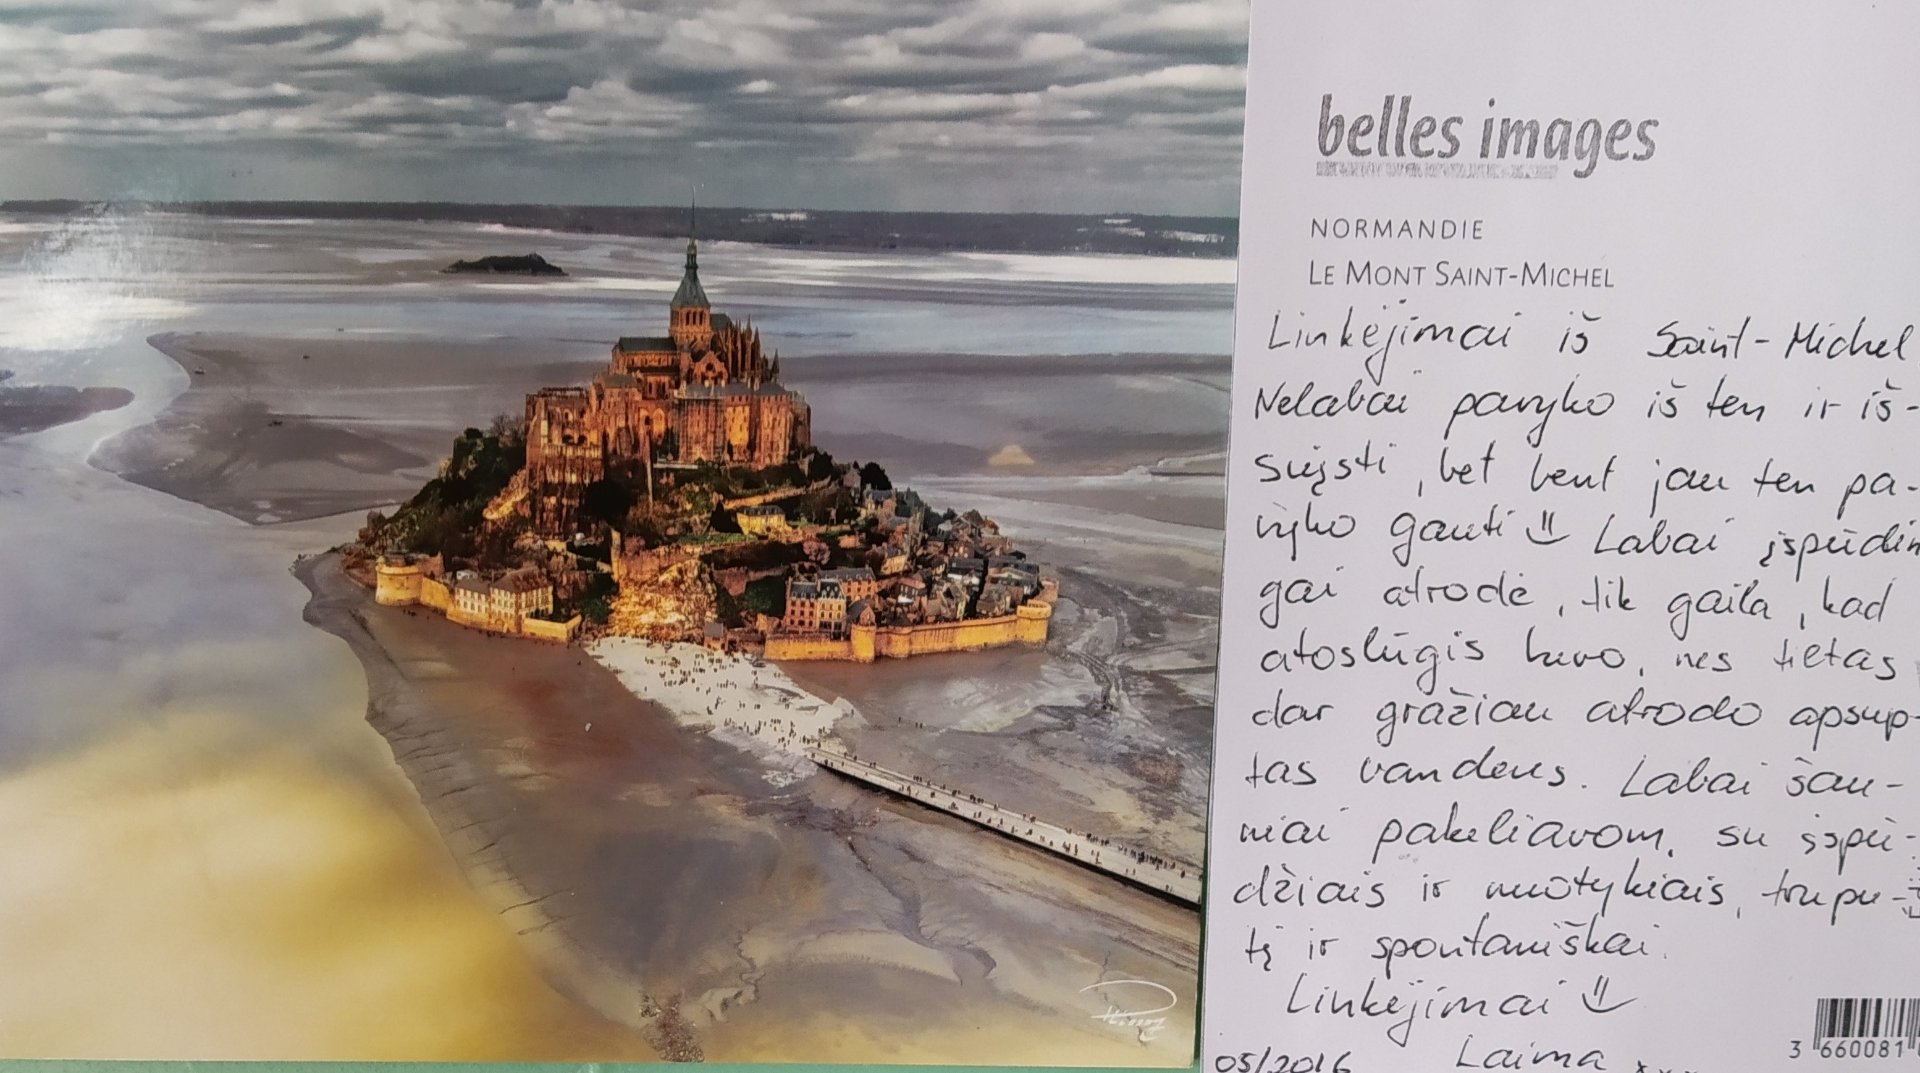 belles images
NORMANDIE
LE MONT SAINT-MICHEL
Linkėjimai iš Saint-Michel
Nelabai pavyko iš ten ir iš-
siųsti, bet bent jau ten pa-
vyko gauti Labai įspūdin
gai atrodė, tik gaila, kad
atoslūgis buvo, nes tietas
dar gražiau atrodo apsup-
tas vandens. Labai šau-
niai pakeliavom, su įspū-
džiais ir nuotykiais, trupu-
tį ir spontaniškai.
Linkėjimai
05/2016 Laima
3 660081